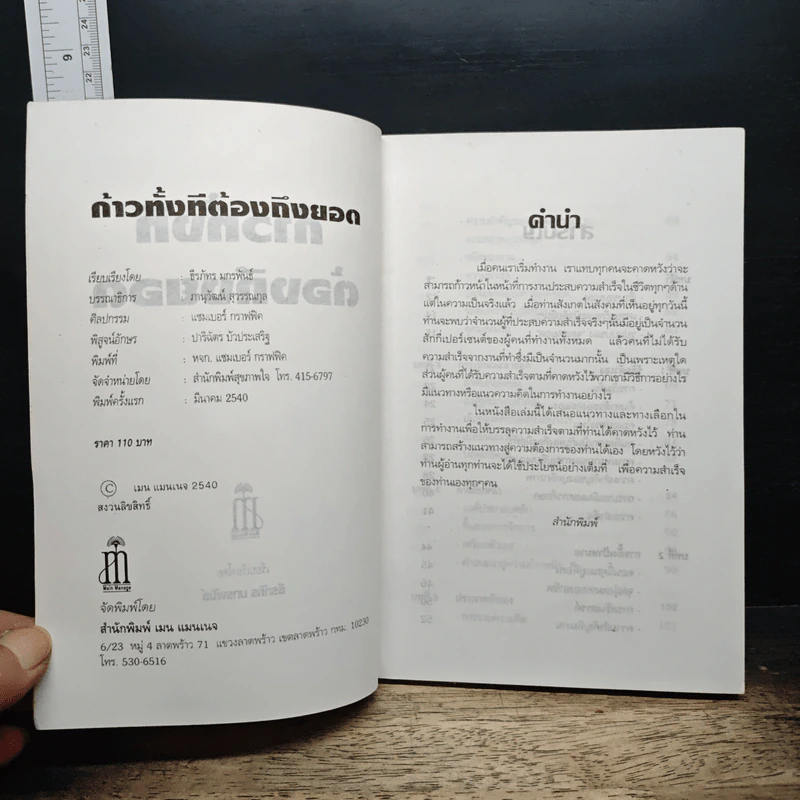 9
24
23
22
ก้าวทั้งทีต้องถึงยอด
เรียบเรียงโดย : ธีรภัทร มกรพันธ์
บรรณาธิการ : ภานุวัฒน์ สุวรรณกุล
ศิลปกรรม : แชมเบอร์ กราฟฟิค
พิสูจน์อักษร : ปาริฉัตร บัวประเสริฐ
พิมพ์ที่ : หจก. แชมเบอร์ กราฟฟิค
จัดจำหน่ายโดย : สำนักพิมพ์สุขภาพใจ โทร. 415-6797
พิมพ์ครั้งแรก : มีนาคม 2540
ราคา 110 บาท
© เมน แมนเนจ 2540
สงวนลิขสิทธิ์
Main Manage
จัดพิมพ์โดย
สำนักพิมพ์ เมน แมนเนจ
6/23 หมู่ 4 ลาดพร้าว 71 แขวงลาดพร้าว เขตลาดพร้าว กทม. 10230
โทร. 530-6516
คำนำ
เมื่อคนเราเริ่มทำงาน เราแทบทุกคนจะคาดหวังว่าจะ
สามารถก้าวหน้าในหน้าที่การงานประสบความสำเร็จในชีวิตทุกๆด้าน
แต่ในความเป็นจริงแล้ว เมื่อท่านสังเกตในสังคมที่เห็นอยู่ทุกวันนี้
ท่านจะพบว่าจำนวนผู้ที่ประสบความสำเร็จจริงๆนั้นมีอยู่เป็นจำนวน
สักกี่เปอร์เซนต์ของผู้คนที่ทำงานทั้งหมด แล้วคนที่ไม่ได้รับ
ความสำเร็จจากงานที่ทำซึ่งมีเป็นจำนวนมากนั้น เป็นเพราะเหตุใด
ส่วนผู้คนที่ได้รับความสำเร็จตามที่คาดหวังไว้พวกเขามีวิธีการอย่างไร
มีแนวทางหรือแนวความคิดในการทำงานอย่างไร
ในหนังสือเล่มนี้ได้เสนอแนวทางและทางเลือกใน
การทำงานเพื่อให้บรรลุความสำเร็จตามที่ท่านได้คาดหวังไว้ ท่าน
สามารถสร้างแนวทางสู่ความต้องการของท่านได้เอง โดยหวังไว้ว่า
ท่านผู้อ่านทุกท่านจะได้ใช้ประโยชน์อย่างเต็มที่ เพื่อความสำเร็จ
ของท่านเองทุกๆคน
สำนักพิมพ์